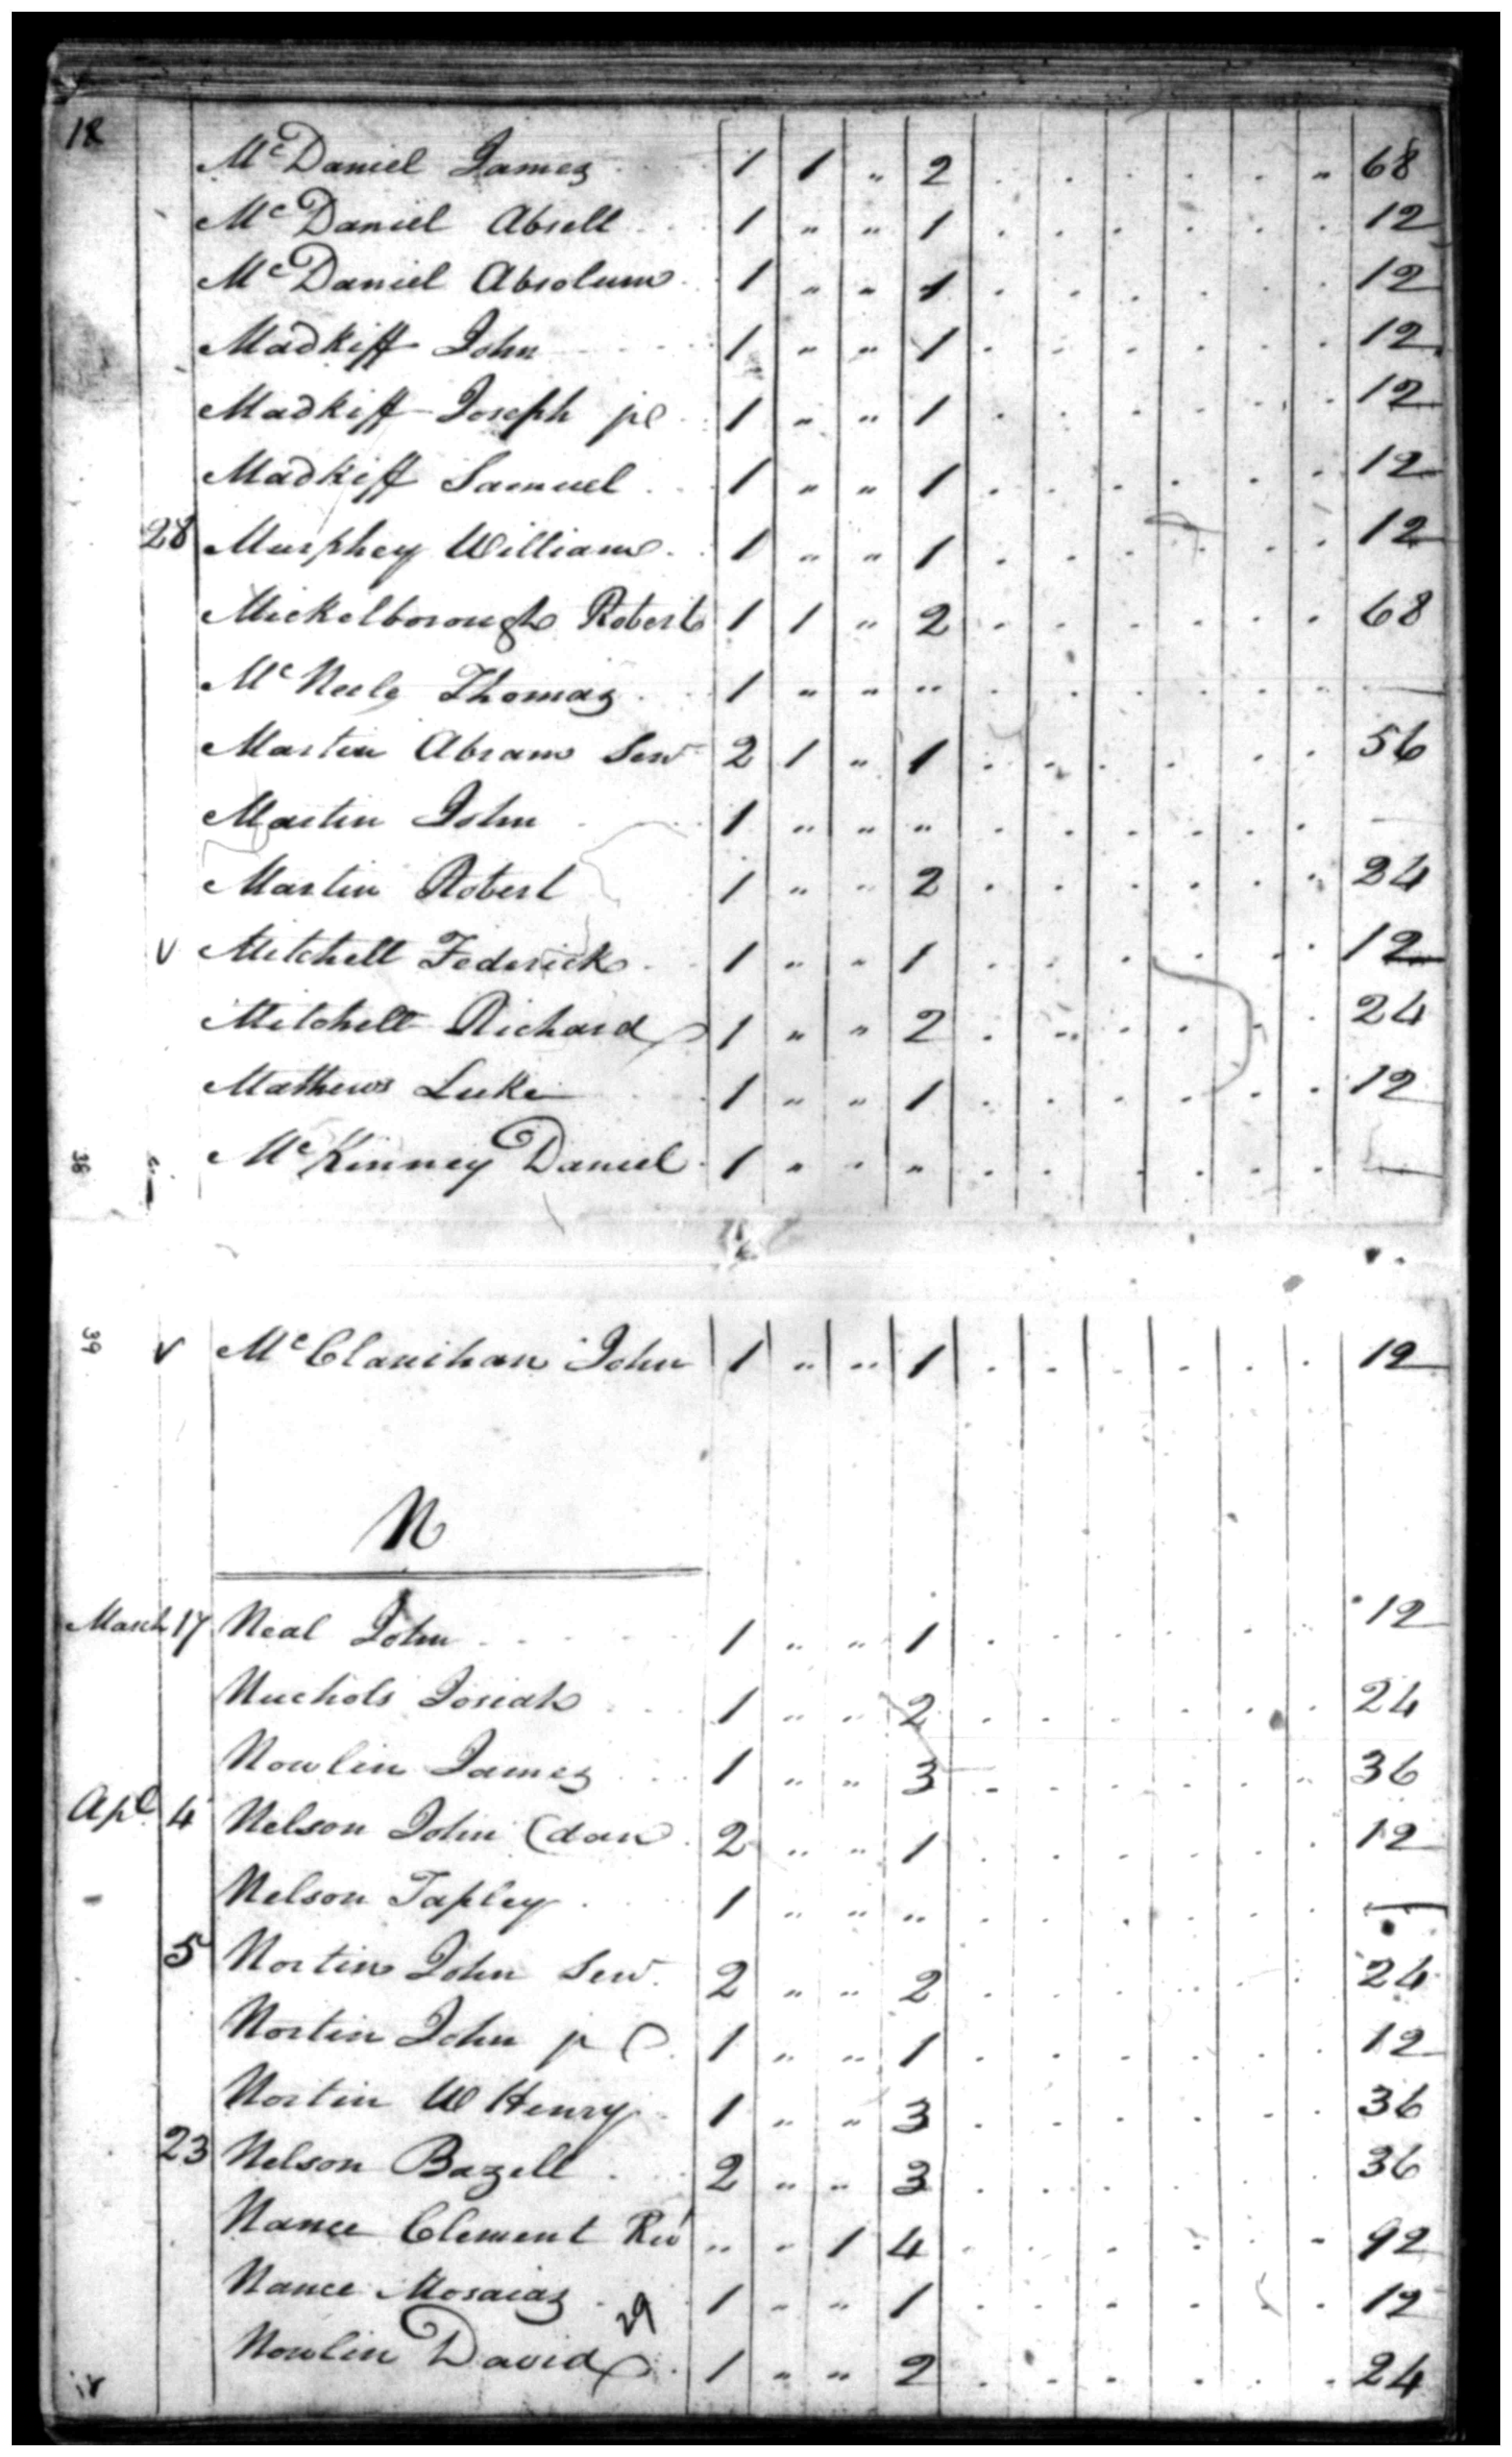 18
McDaniel James 1 1 " 2 . . . . . " 68
McDaniel Absell 1 " " 1 . . . . . . 12
McDaniel Absolum 1 " " 1 . . . . . . 12
Madkiff John 1 " " 1 . . . . . . 12
Madkiff Joseph jr 1 " " 1 . . . . . . 12
Madkiff Samuel 1 " " 1 . . . . . . 12
28 Murphey William 1 " " 1 . . . . . . 12
Mickelborough Robert 1 1 " 2 . . . . . . 68
McNeely Thomas 1 " " " . . . . . . —
Martin Abram Senr 2 1 " 1 . . . . . . 56
Martin John 1 " " " . . . . . . —
Martin Robert 1 " " 2 . . . . . . 24
v Mitchell Federick 1 " " 1 . . . . . . 12
Mitchell Richard 1 " " 2 . . . . . . 24
Mathews Luke 1 " " 1 . . . . . . 12
38 McKinney Daniel 1 " " " . . . . . . —
39 v McClanihan John 1 " " 1 . . . . . . 12
N
March 17 Neal John 1 " " 1 . . . . . . 12
Nuchols Josiah 1 " " 2 . . . . . . 24
Nowlin James 1 " " 3 . . . . . " 36
Apl 4 Nelson John (dan 2 " " 1 . . . . . . 12
Nelson Tapley 1 " " " . . . . . . —
5 Nortin John Senr 2 " " 2 . . . . . . 24
Nortin John jr 1 " " 1 . . . . . . 12
Nortin W Henry 1 " " 3 . . . . . . 36
23 Nelson Bazell 2 " " 3 . . . . . . 36
Nance Clement " " 1 4 . . . . . . 92
Nance Mosaias 1 " " 1 . . . . . . 12
29
Nowlin David 1 " " 2 . . . . . . 24